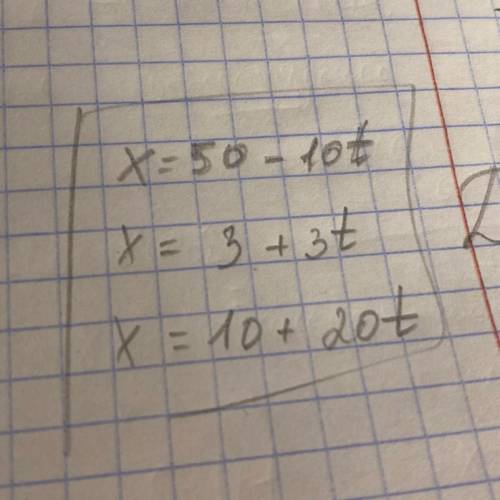 x = 50 - 10t
x = 3 + 3t
x = 10 + 20t